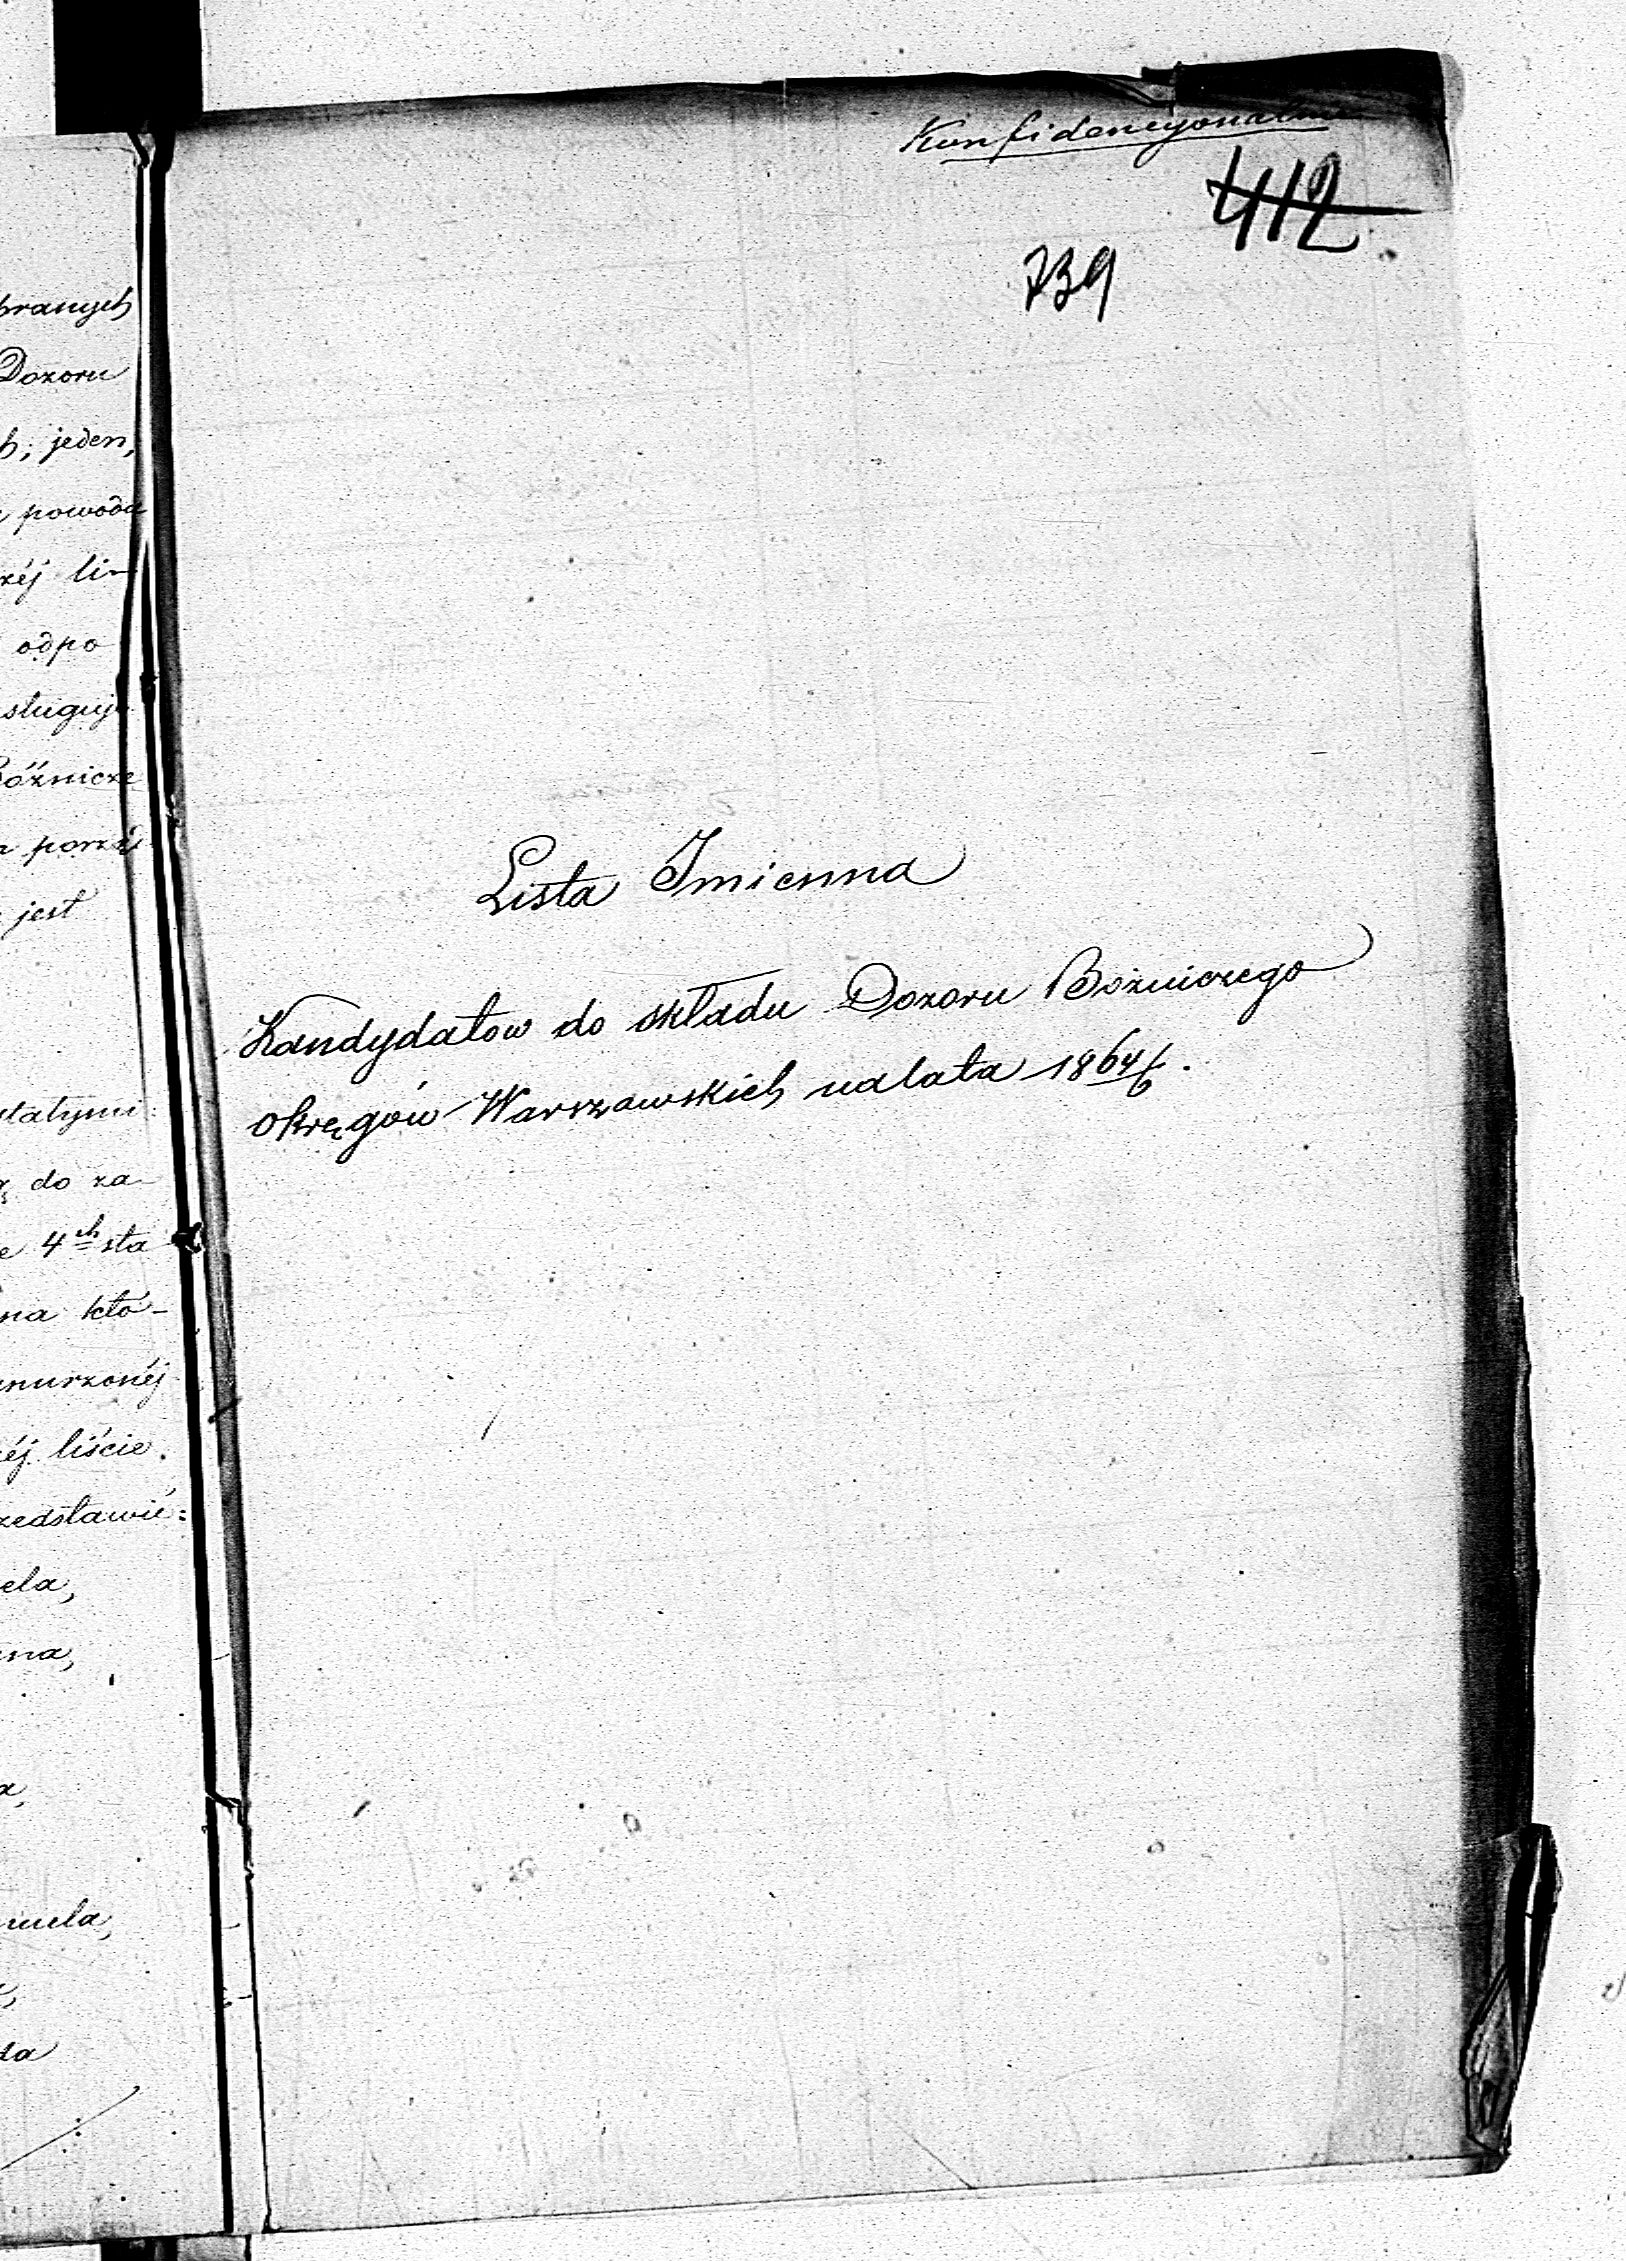 branych
Dozoru
b; jeden,
powodu
zéj li-
odpo
sługuje
Bóżnicze
jest
do za-
e 4ch sta
na któ-
nurzonéj
éj liście.
zedstawie=
ela,
na,
a,
uela,
da
Konfidencyonalnie
412
739
Lista Imienna
Kandydatow do składu Dozoru Bożniczego
Okręgów Warszawskich na lata 1864/6.